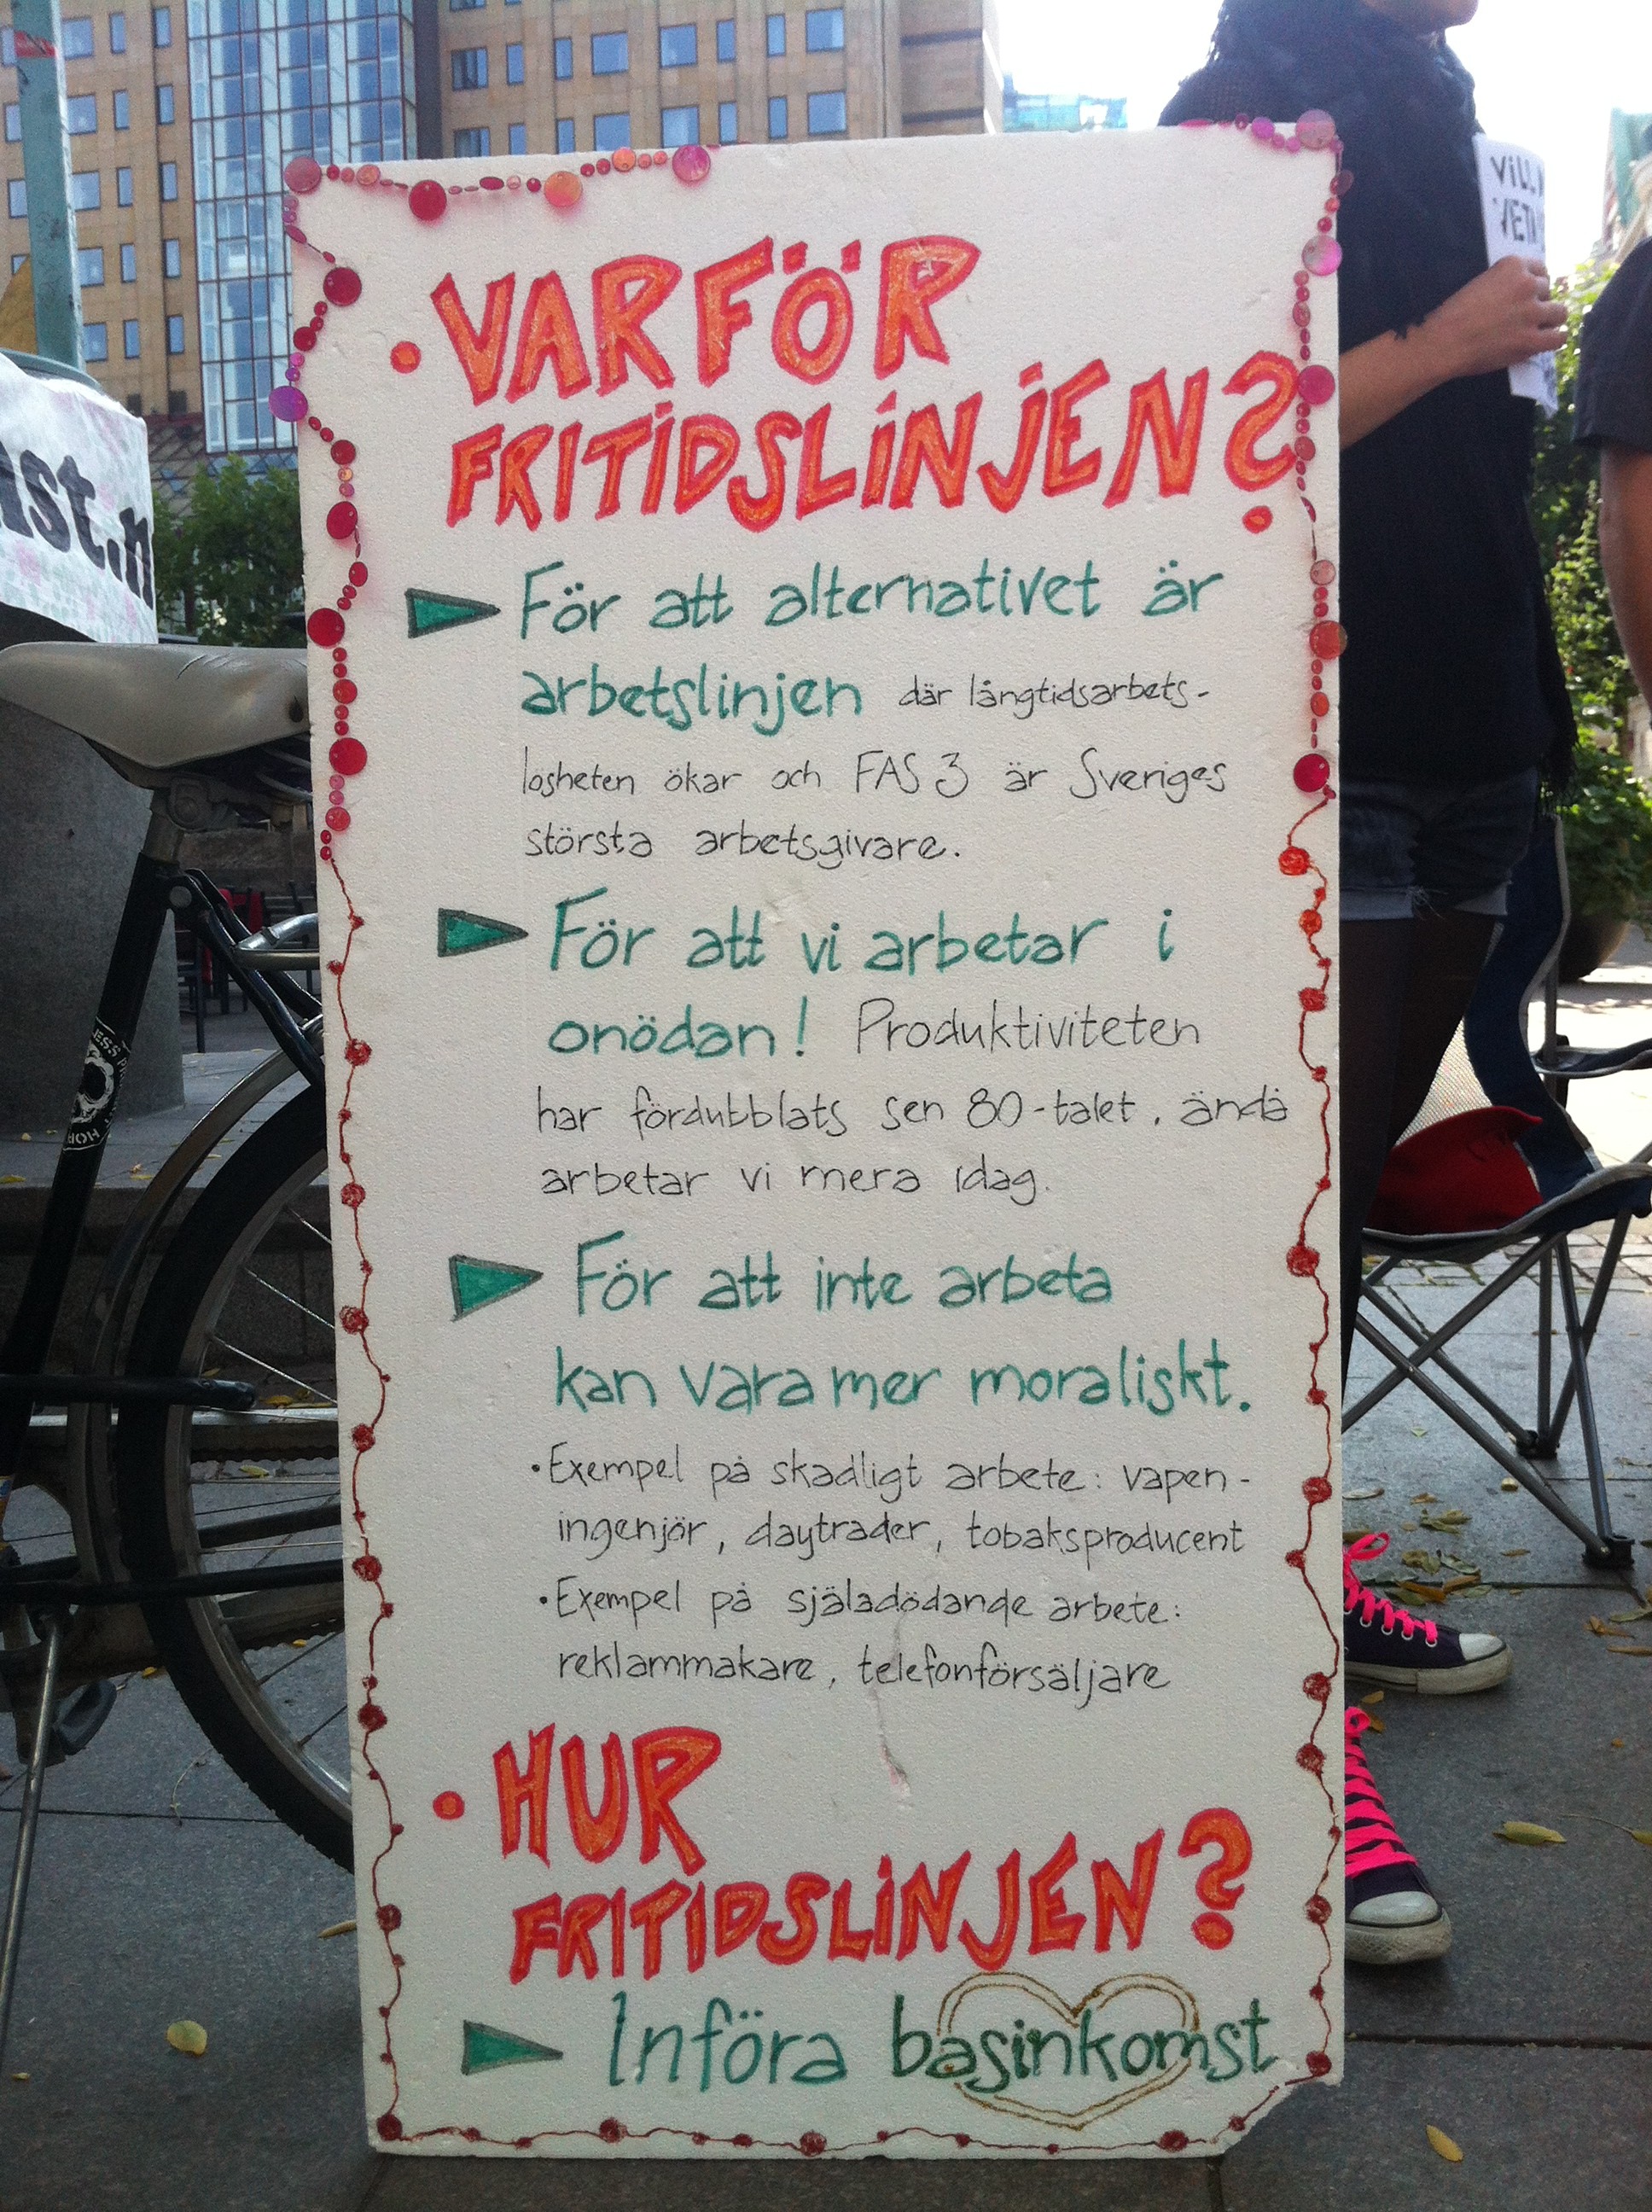 • VARFÖR
FRITIDSLINJEN?
För att alternativet är
arbetslinjen där långtidsarbets-
lösheten ökar och FAS 3 är Sveriges
största arbetsgivare.
För att vi arbetar i
onödan! Produktiviteten
har fördubblats sen 80-talet, ändå
arbetar vi mera idag.
För att inte arbeta
kan vara mer moraliskt.
• Exempel på skadligt arbete: vapen-
ingenjör, daytrader, tobaksproducent
• Exempel på själadödande arbete:
reklammakare, telefonförsäljare
• HUR
FRITIDSLINJEN?
Införa basinkomst